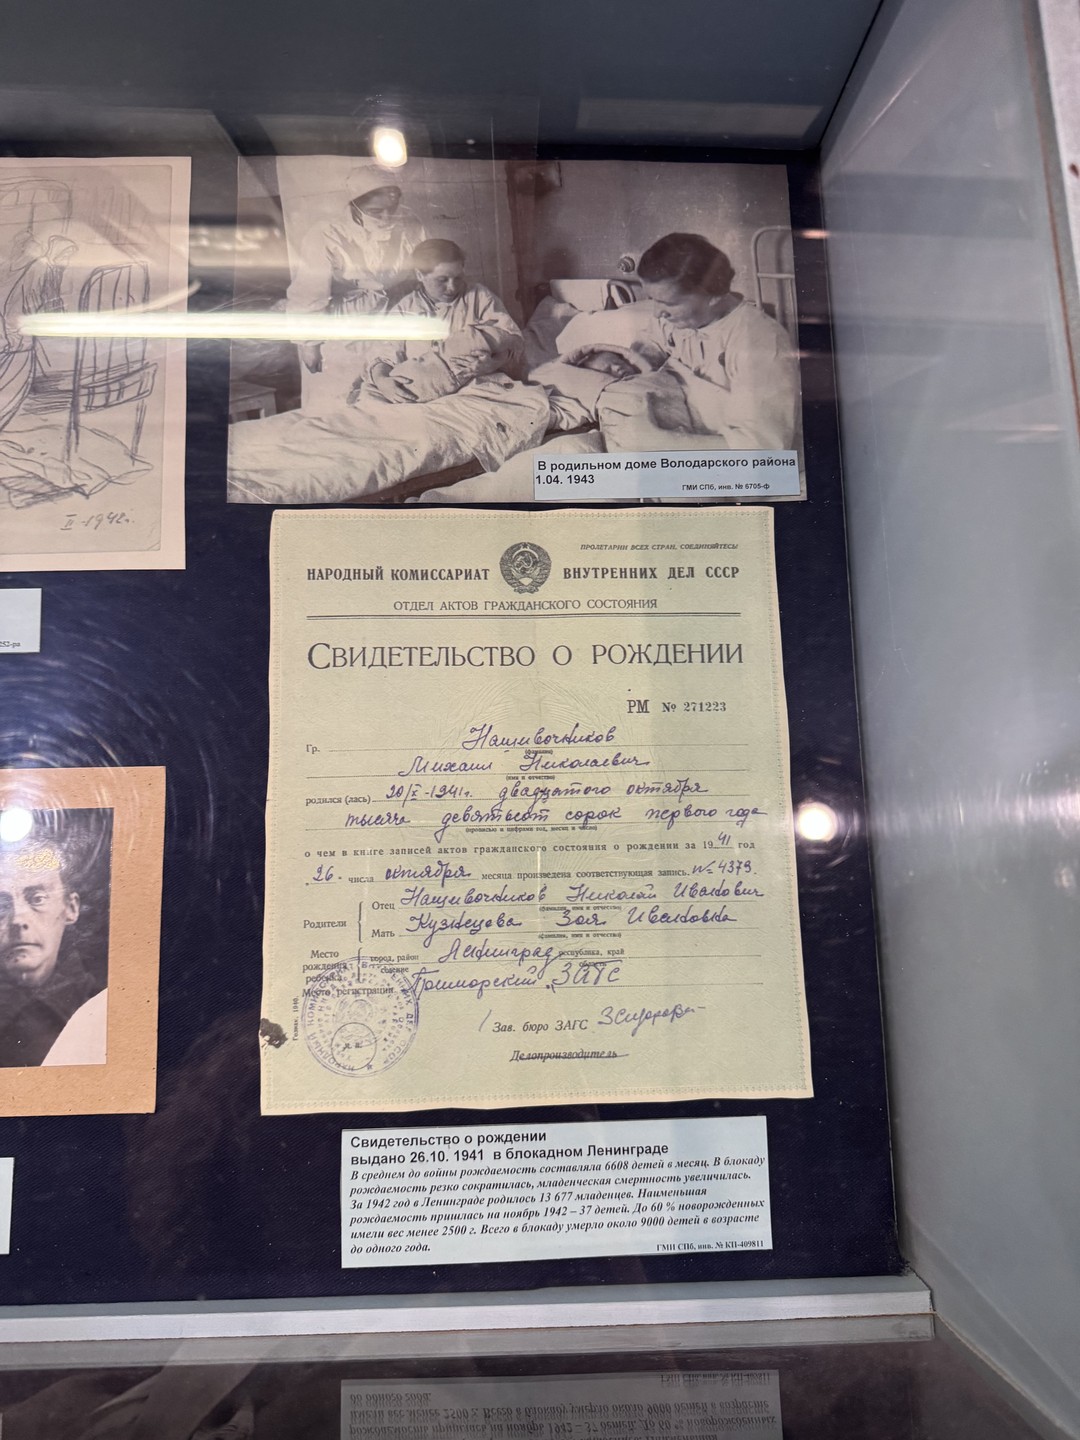 II-1942г.
252-ра
В родильном доме Володарского района
1.04. 1943
ГМИ СПб, инв. № 6705-ф
ПРОЛЕТАРИИ ВСЕХ СТРАН, СОЕДИНЯЙТЕСЬ!
НАРОДНЫЙ КОМИССАРИАТ ВНУТРЕННИХ ДЕЛ СССР
ОТДЕЛ АКТОВ ГРАЖДАНСКОГО СОСТОЯНИЯ
СВИДЕТЕЛЬСТВО О РОЖДЕНИИ
РМ № 271223
Гр. Нашивочников
(фамилия)
Михаил Николаевич
(имя и отчество)
родился (лась) 20/X-1941г. двадцатого октября
тысяча девятьсот сорок первого года
(прописью и цифрами год, месяц и число)
о чем в книге записей актов гражданского состояния о рождении за 1941 год
26 числа октября месяца произведена соответствующая запись № 4379
Родители
Отец Нашивочников Николай Иванович
(фамилия, имя и отчество)
Мать Кузнецова Зоя Ивановна
(фамилия, имя и отчество)
Место рождения ребенка
город, район Ленинград республика, край
селение область
Место регистрации Приморский ЗАГС
Зав. бюро ЗАГС
Делопроизводитель
Свидетельство о рождении
выдано 26.10. 1941 в блокадном Ленинграде
В среднем до войны рождаемость составляла 6608 детей в месяц. В блокаду
рождаемость резко сократилась, младенческая смертность увеличилась.
За 1942 год в Ленинграде родилось 13 677 младенцев. Наименьшая
рождаемость пришлась на ноябрь 1942 – 37 детей. До 60 % новорожденных
имели вес менее 2500 г. Всего в блокаду умерло около 9000 детей в возрасте
до одного года.
ГМИ СПб, инв. № КП-409811